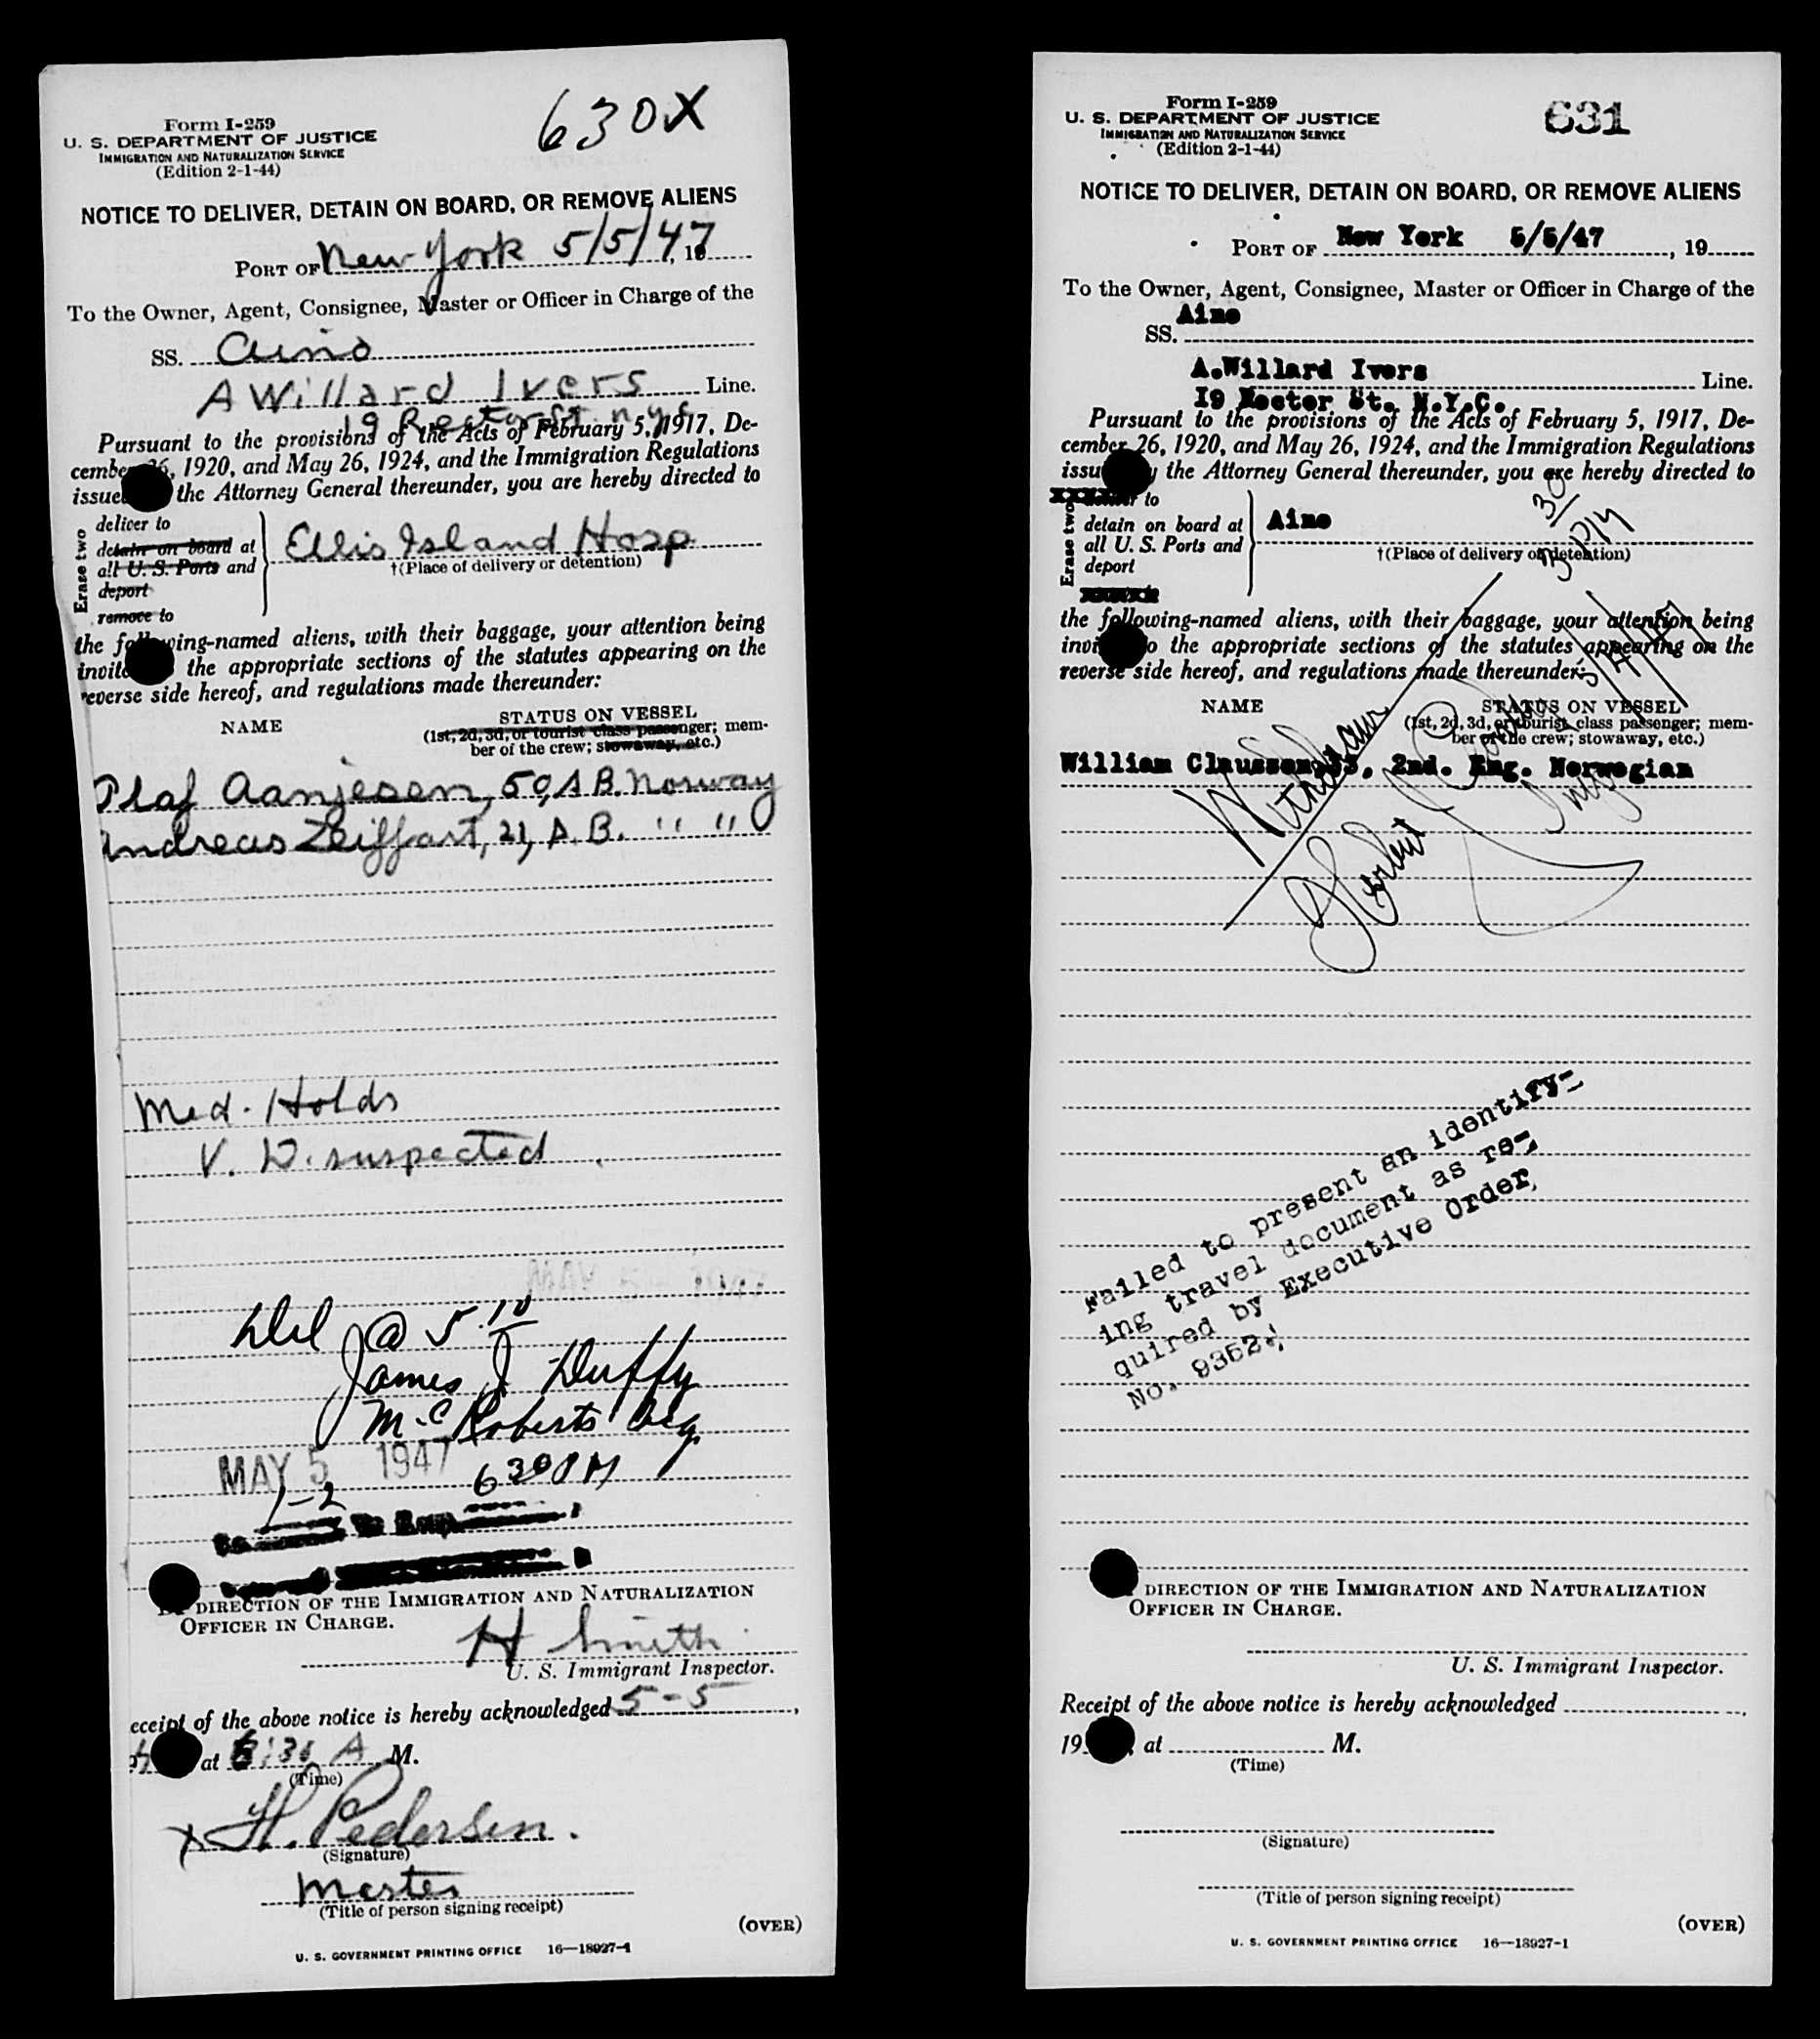 Form I-259
U. S. DEPARTMENT OF JUSTICE
IMMIGRATION AND NATURALIZATION SERVICE
(Edition 2-1-44)
630X
NOTICE TO DELIVER, DETAIN ON BOARD, OR REMOVE ALIENS
PORT OF New York 5/5/47, 19
To the Owner, Agent, Consignee, Master or Officer in Charge of the
SS. Aino
A Willard Ivers Line.
19 Rector St. n.y.c.
Pursuant to the provisions of the Acts of February 5, 1917, De-
cember 26, 1920, and May 26, 1924, and the Immigration Regulations
issued the Attorney General thereunder, you are hereby directed to
Erase two
deliver to
detain on board at
all U. S. Ports and
deport
remove to
Ellis Island Hosp
†(Place of delivery or detention)
the following-named aliens, with their baggage, your attention being
invited the appropriate sections of the statutes appearing on the
reverse side hereof, and regulations made thereunder:
NAME
STATUS ON VESSEL
(1st, 2d, 3d, or tourist class passenger; mem-
ber of the crew; stowaway, etc.)
Olaf Aanjesen, 50, A B. Norway
Andreas Zeiffart, 21, A.B. " "
Med. Holds
V. D. suspected
Del @ 5.10
James J Duffy
McRoberts Agy.
MAY 5 1947
630 PM
1-2
DIRECTION OF THE IMMIGRATION AND NATURALIZATION
OFFICER IN CHARGE.
H Smith
U. S. Immigrant Inspector.
eceipt of the above notice is hereby acknowledged 5-5,
at :30 A M.
(Time)
X H. Pedersen.
(Signature)
Master
(Title of person signing receipt)
(OVER)
U. S. GOVERNMENT PRINTING OFFICE 16—18927-1
Form I-259
U. S. DEPARTMENT OF JUSTICE
IMMIGRATION AND NATURALIZATION SERVICE
(Edition 2-1-44)
631
NOTICE TO DELIVER, DETAIN ON BOARD, OR REMOVE ALIENS
PORT OF New York 5/5/47, 19
To the Owner, Agent, Consignee, Master or Officer in Charge of the
SS. Aino
A.Willard Ivers Line.
19 Rector St. N.Y.C.
Pursuant to the provisions of the Acts of February 5, 1917, De-
cember 26, 1920, and May 26, 1924, and the Immigration Regulations
issu y the Attorney General thereunder, you are hereby directed to
Erase two
to
detain on board at
all U. S. Ports and
deport
Aino
†(Place of delivery or detention)
330 PM
the following-named aliens, with their baggage, your attention being
invi o the appropriate sections of the statutes appearing on the
reverse side hereof, and regulations made thereunder:
NAME
STATUS ON VESSEL
(1st, 2d, 3d, or tourist class passenger; mem-
ber of the crew; stowaway, etc.)
William Claussen, 33, 2nd. Eng. Norwegian
Withdrawn
Herbert
Failed to present an identify-
ing travel document as re-
quired by Executive Order
No. 9352.
DIRECTION OF THE IMMIGRATION AND NATURALIZATION
OFFICER IN CHARGE.
U. S. Immigrant Inspector.
Receipt of the above notice is hereby acknowledged ,
19 , at M.
(Time)
(Signature)
(Title of person signing receipt)
(OVER)
U. S. GOVERNMENT PRINTING OFFICE 16—18927-1